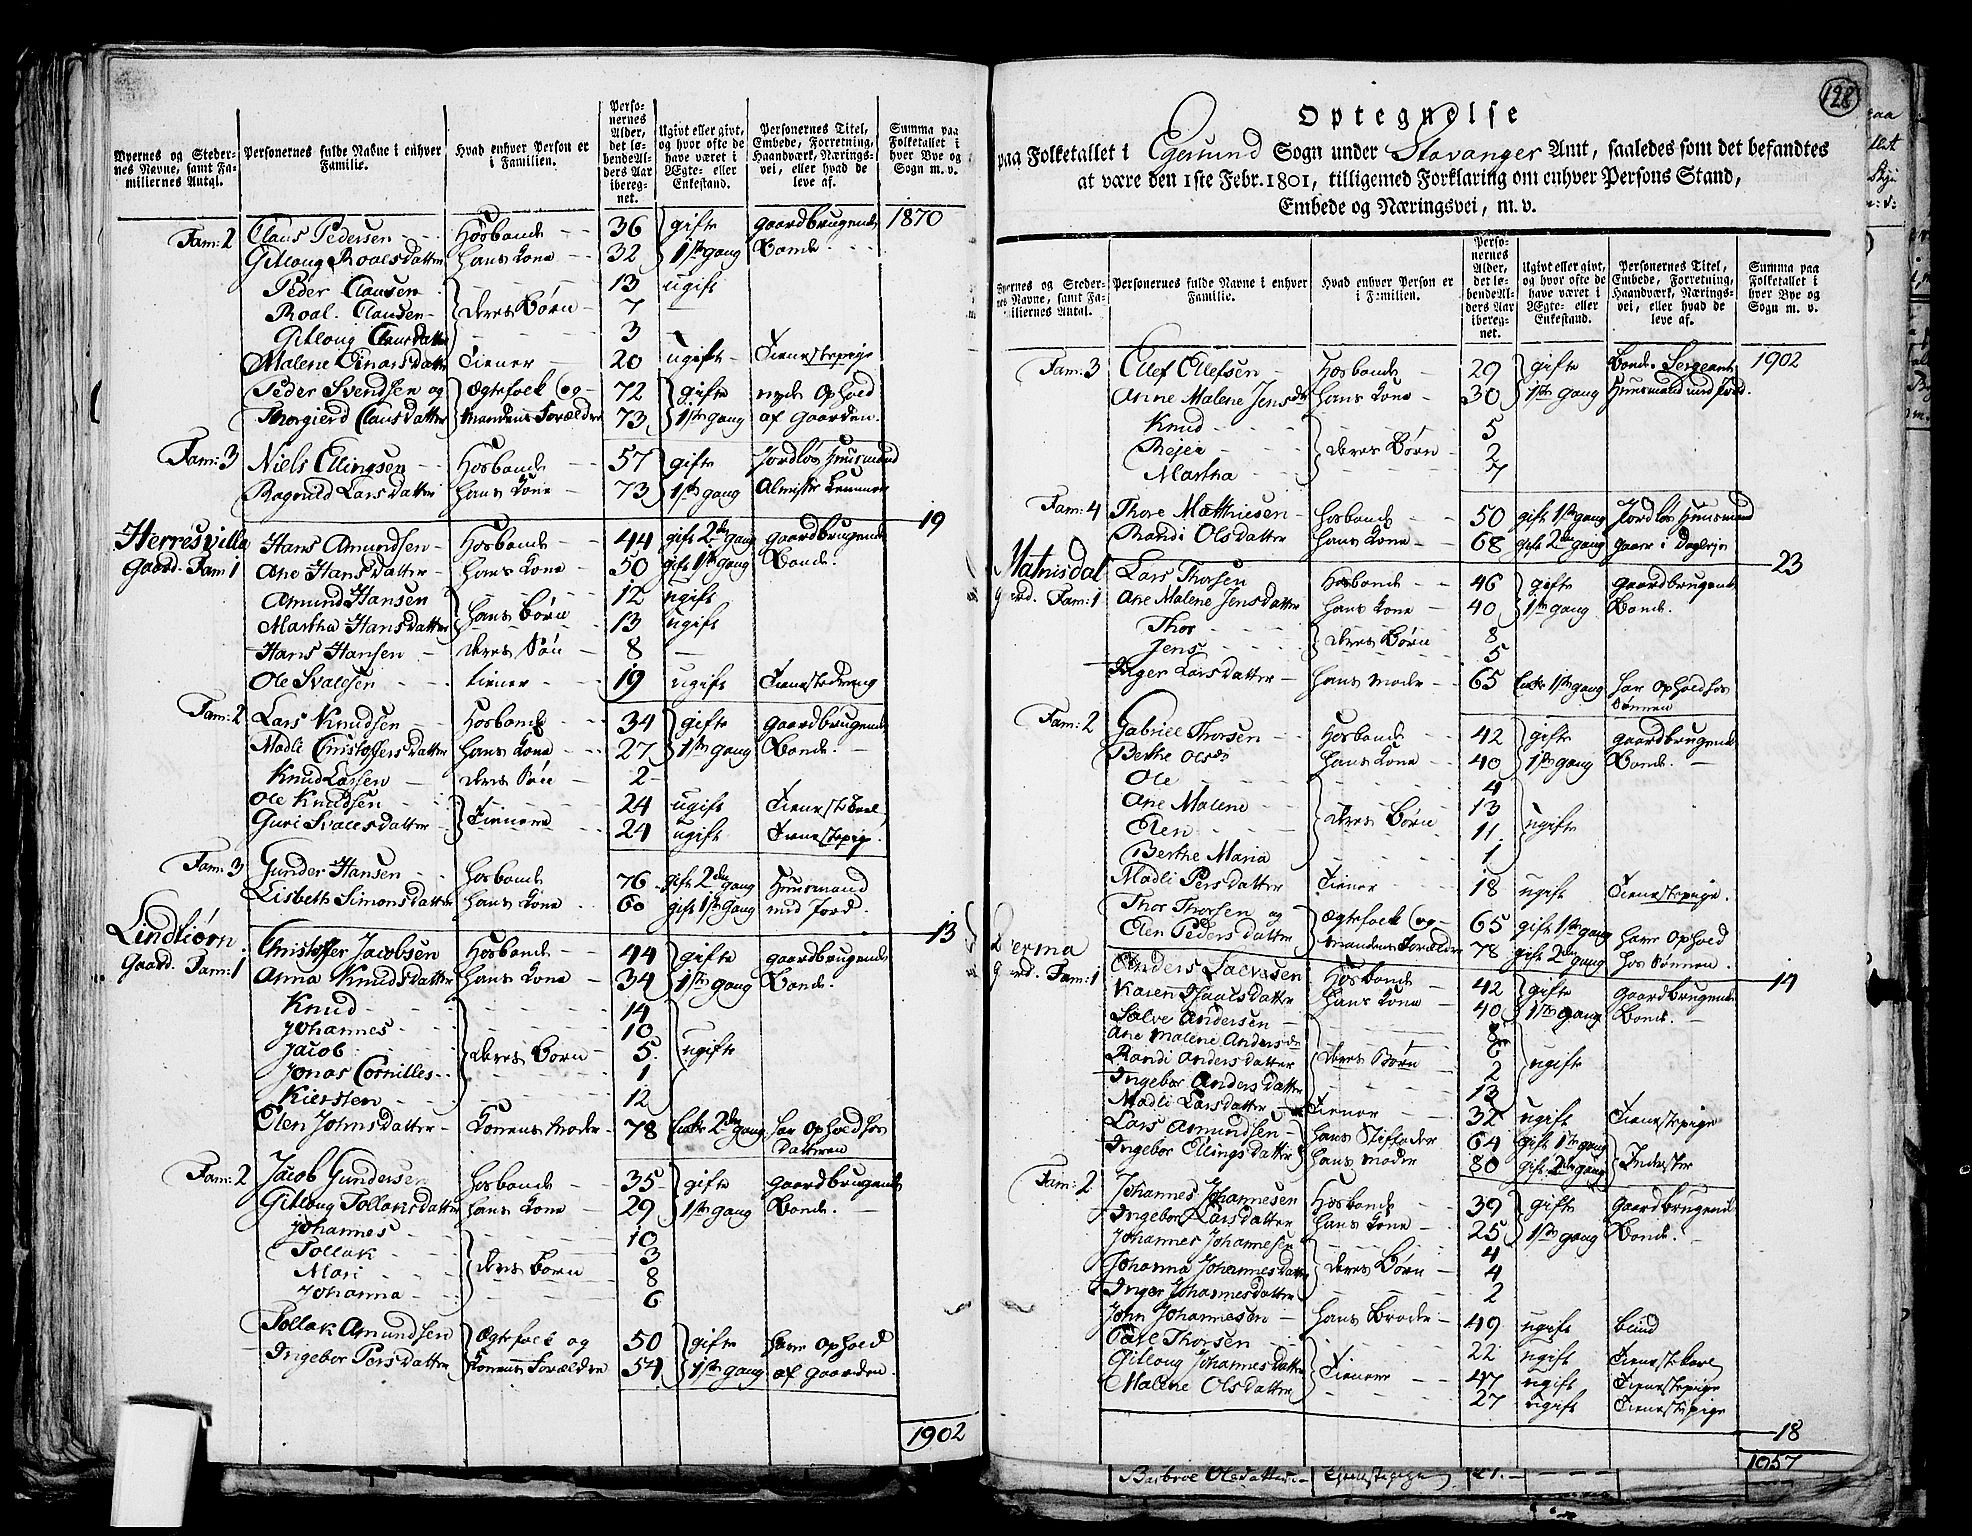 Byernes og Steder-
nes Navne, samt Fa-
miliernes Antal.
Personernes fulde Navne i enhver
Familie.
Hvad enhver Person er
i Familien.
Perso-
nernes
Alder,
det lø-
bende Al-
ders Aar
ibereg-
net.
Ugivt eller givt,
og hvor ofte de
have været i
Ægte- eller
Enkestand.
Personernes Titel,
Embede, Forretning,
Haandværk, Nærings-
vei, eller hvad de
leve af.
Summa paa
Folketallet i
hver Bye og
Sogn m. v.
Fam: 2 Claus Pedersen Hosbonde 36 gifte gaardbrugende 1870
Gitloug Roalsdatter hans Kone 32 1ste gang Bonde
Peder Clausen 13 ugift
Roal Clausen deres Børn 7
Gitloug Clausdatter 3
Malene Einarsdatter Tiener 20 ugift Tienestepige
Peder Svendsen og Ægtefolk og 72 gifte nyde Ophold
Thorgierd Clausdatter Mandens Forældre 73 1ste gang af Gaarden
Fam: 3 Niels Ellingsen Hosbonde 57 gifte Jordløs Huusmand
Ragnild Larsdatter hans Kone 73 1ste gang Almisse Lemmer
19
Herresvilla Hans Amundsen Hosbonde 44 gift 2den gang gaardbrugende
Gaard. Fam: 1 Ane Hansdatter hans Kone 50 gift 1ste gang Bonde
Amund Hansen 12 ugift
Martha Hansdatter hans Børn 13 ugift
Hans Hansen deres Søn 8
Ole Svalesen tiener 19 ugift Tienestedreng
Fam: 2 Lars Knudsen Hosbonde 34 gifte gaardbrugende
Madli Christophersdatter hans Kone 27 1ste gang Bonde
Knud Larsen deres Søn 2
Ole Knudsen 24 ugift Tienestekarl
Guri Svalesdatter Tienere 24 ugift Tienestepige
Fam: 3 Gunder Hansen Hosbonde 76 gift 2den gang Huusmand
Lisbeth Simonsdatter hans Kone 60 gift 1ste gang med Jord
13
Lindtiørn Christoffer Jacobsen Hosbonde 44 gifte gaardbrugende
Gaard. Fam: 1 Anna Knudsdatter hans Kone 34 1ste gang Bonde
Knud 14
Johannes 10
Jacob deres Børn 5 ugifte
Jonas Cornilles 1
Kiersten 12
Elen Johnsdatter Konens Moder 78 Enke 2den gang har Ophold hos
Datteren
Fam: 2 Jacob Gundersen Hosbonde 35 gifte gaardbrugende
Gitloug Tollaksdatter hans Kone 29 1ste gang Bonde
Johannes 10
Tollak 3
Mari deres Børn 8
Johanna 6
Tollak Amundsen Ægtefolk og 50 gifte have Ophold
Ingebor Persdatter Konens Forældre 54 1ste gang af Gaarden
1902
128
Optegnelse
paa Folketallet i Egersund Sogn under Stavanger Amt, saaledes som det befandtes
at være den 1ste Febr. 1801, tilligemed Forklaring om enhver Persons Stand,
Embede og Næringsvei, m. v.
Byernes og Steder-
nes Navne, samt Fa-
miliernes Antal.
Personernes fulde Navne i enhver
Familie.
Hvad enhver Person er
i Familien.
Perso-
nernes
Alder,
det lø-
bende Al-
ders Aar
ibereg-
net.
Ugivt eller givt,
og hvor ofte de
have været i
Ægte- eller
Enkestand.
Personernes Titel,
Embede, Forretning,
Haandværk, Nærings-
vei, eller hvad de
leve af.
Summa paa
Folketallet i
hver Bye og
Sogn m. v.
Fam: 3 Ellef Ellefsen Hosbonde 29 gifte Bonde Sergeant 1902
Anne Malene Jensdtr hans Kone 30 1ste gang Huusmand med Jord
Knud 5
Rejer deres Børn 2
Martha 7
Fam: 4 Thore Matthiesen Hosbonde 50 gift 1ste gang Jordløs Huusmand
Randi Olsdatter hans Kone 68 gift 2den gang gaaer i Dagleje
23
Matnisdal Lars Thorsen Hosbonde 46 gifte gaardbrugende
Gaard. Fam: 1 Ane Malene Jensdatter hans Kone 40 1ste gang Bonde
Thor deres Børn 8
Jens 5
Inger Larsdatter hans Moder 65 Enke 1ste gang har Ophold hos
Sønnen
Fam: 2 Gabriel Thorsen Hosbonde 42 gifte gaardbrugende
Berthe Olsdr hans Kone 40 1ste gang Bonde
Ole 4
Ane Malene 13
Elen deres Børn 11 ugifte
Berthe Maria 1
Madli Persdatter Tiener 18 ugift Tienestepige
Thor Thorsen og Ægtefolk og 65 gift 1ste gang have Ophold
Elen Pedersdatter Mandens Forældre 78 gift 2den gang hos Sønnen
14
Gaard. Fam: 1 Anders Salvesen Hosbonde 42 gifte Gaardbrugende
Karen hans Kone 40 1ste gang Bonde
Salve Andersen 8
Ane Malene Andersdr
Randi Andersdatter deres Børn 2 ugifte
Ingebor Andersdatter 13
Madli Larsdatter Tiener 32 ugift Tienestepige
Lars Amundsen hans Stiffader 64 gift 1ste gang
Ingebor Ellingsdatter hans Moder 80 gift 2den gang Inderster
Fam: 2 Johannes Johannesen Hosbonde 39 gifte Gaardbrugende
Ingebor Larsdatter hans Kone 25 1ste gang Bonde
Johannes Johannesen 4
Johanna Johannesdatter deres Børn 4
Inger Johannesdatter 2
John Johannesen hans Broder 49 ugift blind
Carl Thorsen 22 ugift Tienestekarl
Gitloug Johannesdatter Tienere 47 ugift Tienestepige
Malene Olsdatter 27 ugift Tienestepige
18
1957
Barbroe Olsdatter Tienestepige